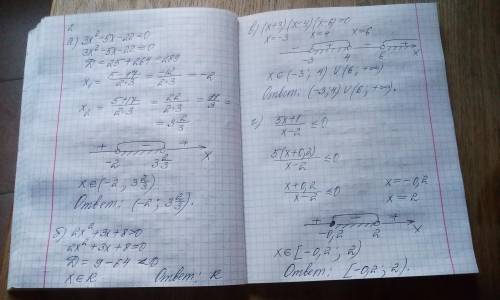 2
а) 3x² - 5x - 22 = 0
3x² - 5x - 22 = 0
D = 25 + 264 = 289
x₁ = (5-17)/(2·3) = -12/(2·3) = -2
x₂ = (5+17)/(2·3) = 22/(2·3) = 11/3 =
= 3 2/3
+ - +
-2 3 2/3 x
x ∈ (-2; 3 2/3)
Ответ: (-2; 3 2/3).
б) 2x² + 3x + 8 > 0
2x² + 3x + 8 = 0
D = 9 - 64 < 0
x ∈ R Ответ: R
в) (x+3)(x-4)(x-6) = 0
x = -3 x = 4 x = 6
- + - +
-3 4 6 x
x ∈ (-3; 4) ∪ (6; +∞)
Ответ: (-3; 4) ∪ (6; +∞).
г) (5x+1)/(x-2) ≤ 0
5(x+0,2)/(x-2) ≤ 0
(x+0,2)/(x-2) ≤ 0 x = -0,2
x = 2
+ - +
-0,2 2 x
x ∈ [-0,2; 2)
Ответ: [-0,2; 2).